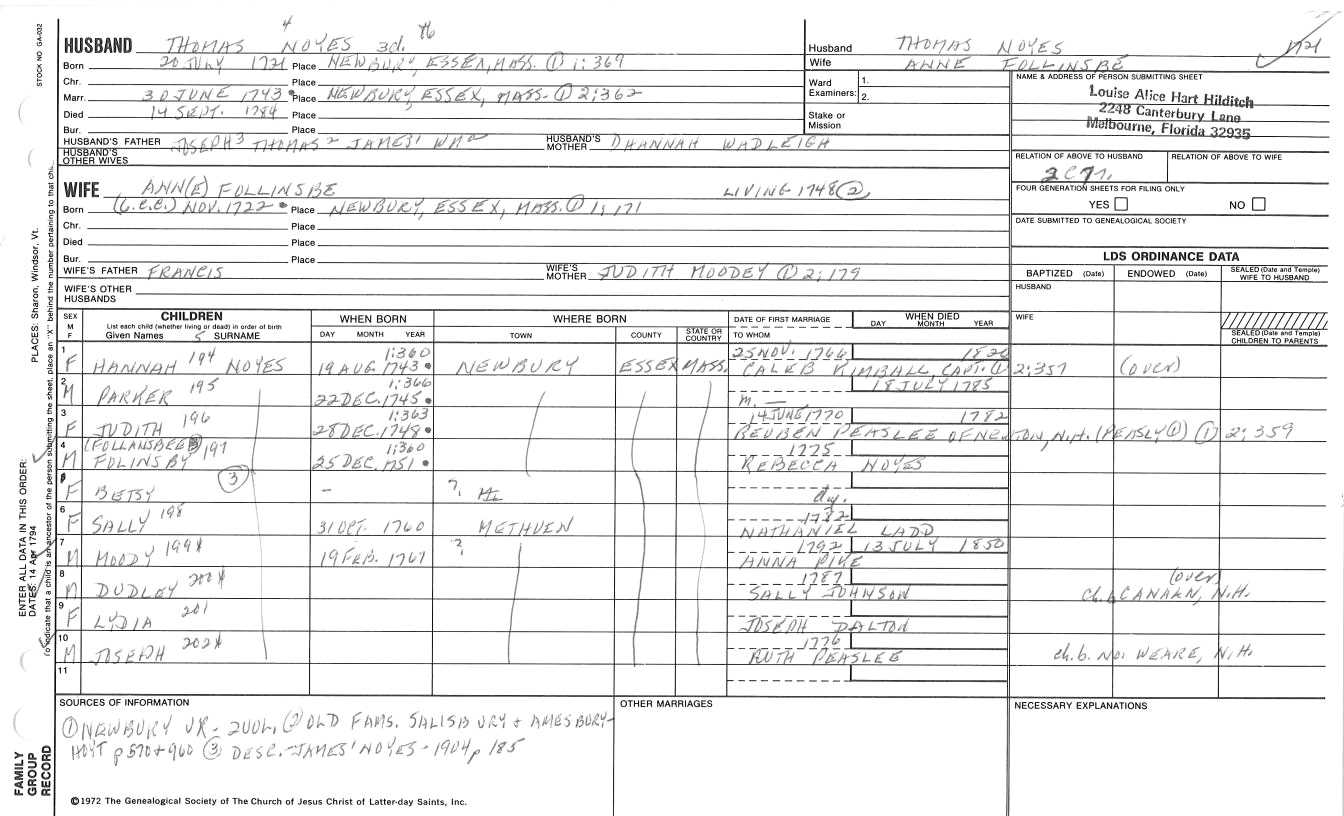 STOCK NO GA-032
HUSBAND THOMAS 4 NOYES 3d. 76
Born 20 JULY 1721 Place NEWBURY, ESSEX, MASS. ① 1:369
Chr. Place
Marr. 30 JUNE 1743 Place NEWBURY, ESSEX, MASS. ① 2:362
Died 14 SEPT. 1784 Place
Bur. Place
HUSBAND'S FATHER JOSEPH3 THOMAS2 JAMES1 WM
HUSBAND'S MOTHER HANNAH WADLEIGH
HUSBAND'S OTHER WIVES
Husband THOMAS NOYES 1721
Wife ANNE FOLLINSBE
Ward Examiners: 1.
2.
Stake or Mission
NAME & ADDRESS OF PERSON SUBMITTING SHEET
Louise Alice Hart Hilditch
2248 Canterbury Lane
Melbourne, Florida 32935
RELATION OF ABOVE TO HUSBAND
RELATION OF ABOVE TO WIFE
2C7r.
FOUR GENERATION SHEETS FOR FILING ONLY
YES NO
DATE SUBMITTED TO GENEALOGICAL SOCIETY
WIFE ANN(E) FOLLINSBE LIVING 1748 ②
Born NOV. 1722 Place NEWBURY, ESSEX, MASS. ① 1:171
Chr. Place
Died Place
Bur. Place
WIFE'S FATHER FRANCIS
WIFE'S MOTHER JUDITH MOODEY ① 2:179
WIFE'S OTHER HUSBANDS
LDS ORDINANCE DATA
BAPTIZED (Date) ENDOWED (Date) SEALED (Date and Temple) WIFE TO HUSBAND
HUSBAND
WIFE
SEALED (Date and Temple) CHILDREN TO PARENTS
SEX M F
CHILDREN
List each child (whether living or dead) in order of birth
Given Names 5 SURNAME
WHEN BORN
DAY MONTH YEAR
WHERE BORN
TOWN COUNTY STATE OR COUNTRY
DATE OF FIRST MARRIAGE
TO WHOM
WHEN DIED
DAY MONTH YEAR
1 F HANNAH 194 NOYES 1:360 19 AUG. 1743 NEWBURY ESSEX MASS. 25 NOV. 1766 1820 CALEB KIMBALL, CAPT. ① 2:357 (OVER)
2 M PARKER 195 1:366 22 DEC. 1745 m. — 18 JULY 1785
3 F JUDITH 196 1:363 28 DEC. 1748 14 JUNE 1770 1782 REUBEN PEASLEE OF NEWTON, N.H. (PEASLY ①) ① 2:359
4 M (FOLLANSBEE) FOLINSBY 197 1:360 25 DEC. 1751 1775 REBECCA NOYES
F BETSY ③ – ? dy.
6 F SALLY 198 31 OCT. 1760 METHUEN 1782 NATHANIEL LADD
7 M MOODY 199 19 FEB. 1767 ? 1792 13 JULY 1850 ANNA PIKE
8 M DUDLEY 1787 SALLY JOHNSON (OVER) ch. b. CANAAN, N.H.
9 F LYDIA 201 JOSEPH DALTON
10 M JOSEPH 202 1776 RUTH PEASLEE ch. b. NO. WEARE, N.H.
11
SOURCES OF INFORMATION
① NEWBURY VR - 2 VOL. ② OLD FAMS. SALISBURY + AMESBURY -
HOYT p 570 + 960 ③ DESC. - JAMES1 NOYES - 1904 p 185
OTHER MARRIAGES
NECESSARY EXPLANATIONS
©1972 The Genealogical Society of The Church of Jesus Christ of Latter-day Saints, Inc.
FAMILY GROUP RECORD
ENTER ALL DATA IN THIS ORDER:
DATES: 14 Apr 1794
PLACES: Sharon, Windsor, Vt.
To indicate that a child is an ancestor of the person submitting the sheet, place an "X" behind the number pertaining to that ch.